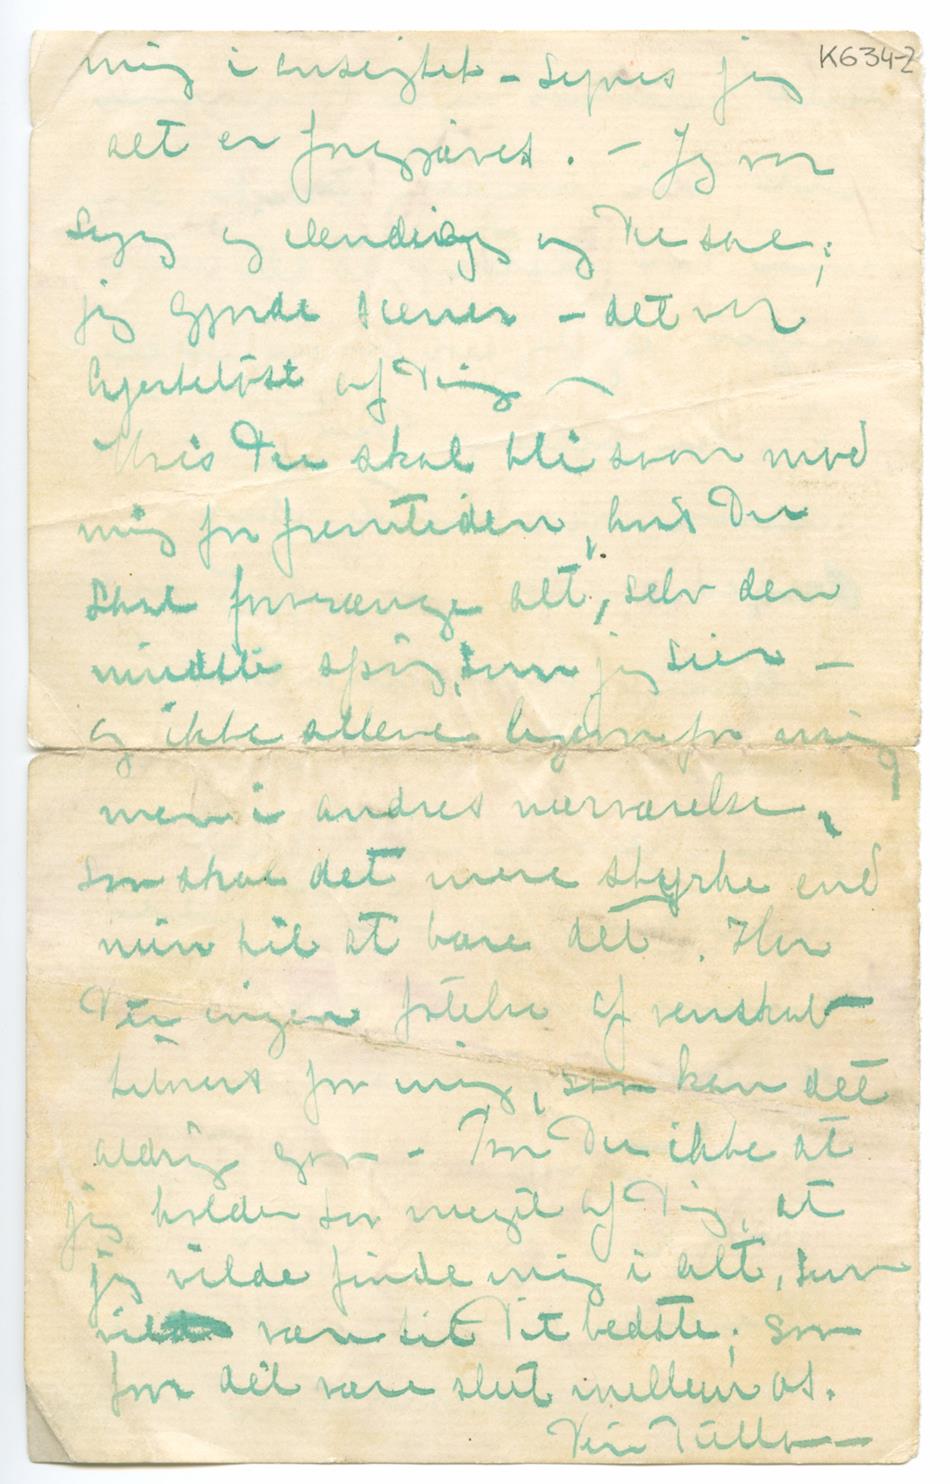 K634-2
mig i ansigtet – synes jeg
alt er forgjæves. – Jeg var
syg og elendig og Du saa;
jeg gjorde scener – det var
hjerteløst af Dig –
Hvis Du skal bli saan mod
mig for fremtiden, hvis Du
skal forvrænge alt, selv den
mindste spøg, som jeg sier –
og ikke allene ligeoverfor mig
men i andres nærværelse,
saa skal det mere styrke end
min til at bære det. Har
Du ingen følelse af venskab
tilovers for mig, saa kan det
aldrig gaa – Tror Du ikke at
jeg holder saa meget af Dig, at
jeg vilde finde mig i alt, som
vilde være til Dit bedste; saa
faar det være slut mellem os.
Din Tulla